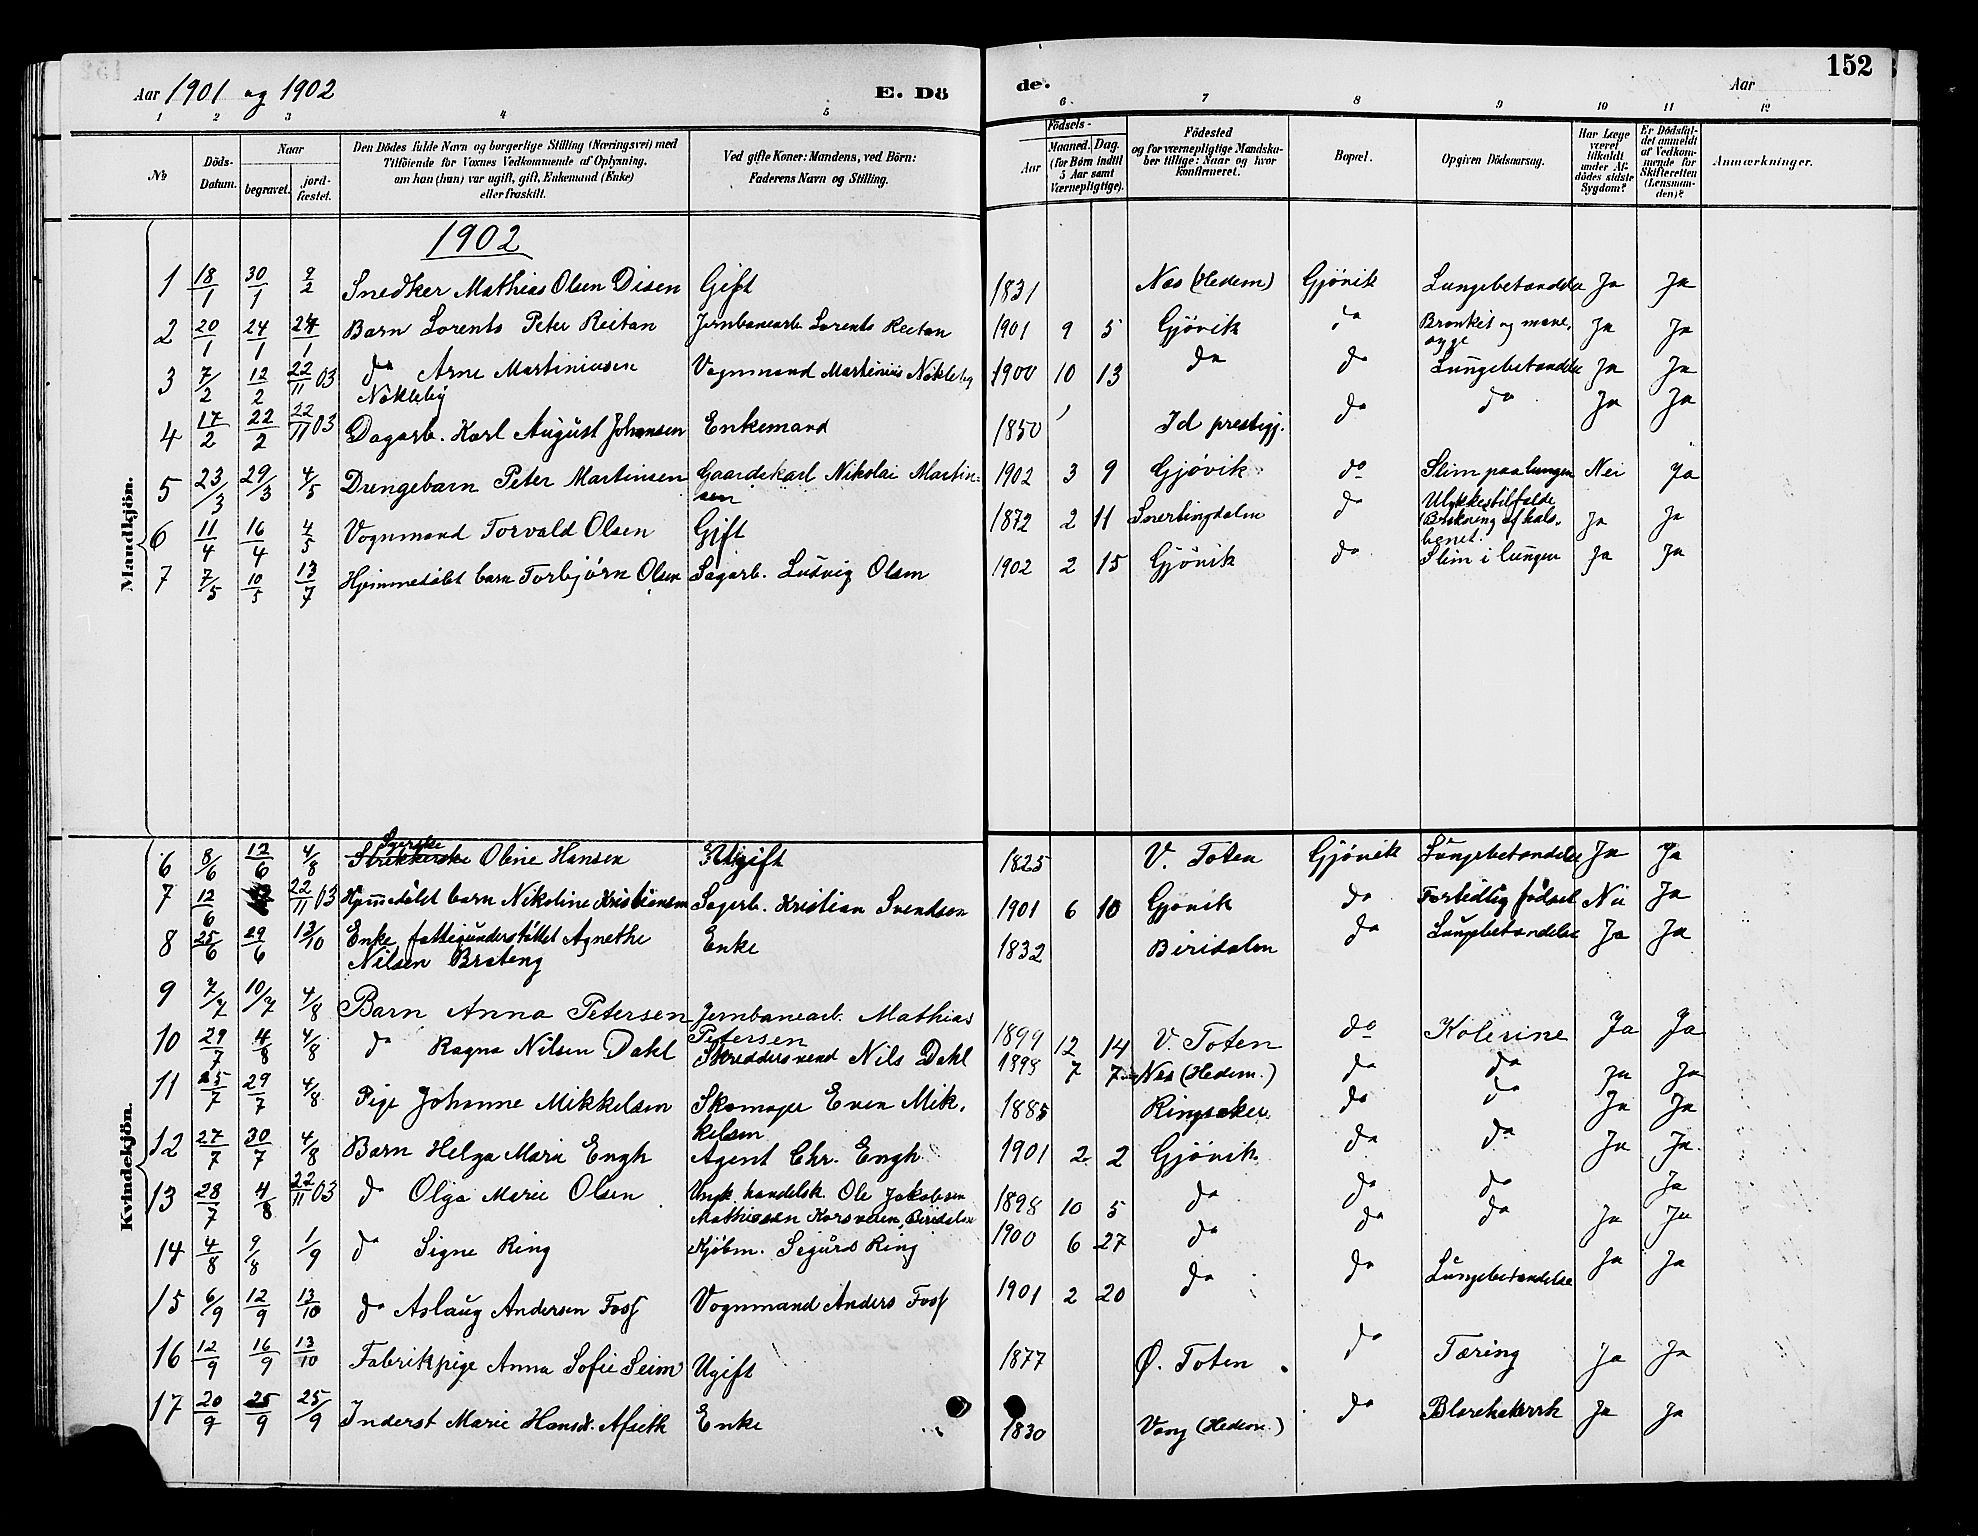 Aar 1901 og 1902
E. Dö
de.
Aar
152
1 2 3 4 5 6 7 8 9 10 11 12
№
Döds-Datum.
Naar
begravet.
jord-fæstet.
Den Dödes fulde Navn og borgerlige Stilling (Næringsvei) med
Tilföiende for Voxnes Vedkommende af Oplysning,
om han (hun) var ugift, gift, Enkemand (Enke)
eller fraskilt.
Ved gifte Koner: Mandens, ved Börn:
Faderens Navn og Stilling.
Födsels-
Aar
Maaned. Dag.
(for Børn indtil
5 Aar samt
Værnepligtige).
Födested
og for værnepligtige Mandska-
ber tillige: Naar og hvor
konfirmeret.
Bopæl.
Opgiven Dödsaarsag.
Har Læge
været
tilkaldt
under Af-
dödes sidste
Sygdom?
Er Dödsfal-
det anmeldt
af Vedkom-
mende for
Skifteretten
(Lensman-
den)?
Anmærkninger.
Mandkjön.
1902
1 18/1 30/1 9/2 Snedker Mathias Olsen Disen Gift 1831 Nes (Hedem) Gjövik Lungebetændelse Ja Ja
2 20/1 24/1 24/1 Barn Lorents Peter Reitan Jernbanearb. Lorents Reitan 1901 9 5 Gjövik do Bronkit og mave, syge Ja Ja
3 7/2 12/2 22/11 03 do Arne Martiniusen Nökleby Vognmand Martinius Nökleby 1900 10 13 do do Lungebetændelse Ja Ja
4 17/2 22/2 22/11 03 Dagarb. Karl August Johansen Enkemand 1850 Id prestegj. do do Ja Ja
5 23/3 29/3 4/5 Drengebarn Peter Martinsen Gaardskarl Nikolai Martinsen 1902 3 9 Gjövik do Slim paa lungen Nei Ja
6 11/4 16/4 4/5 Vognmand Torvald Olsen Gift 1872 2 11 Snertingdalen do Ulykkestilfælde (Brækning af halsbenet. Ja Ja
7 7/5 10/5 13/7 Hjemmedöbt barn Torbjörn Olsen Sagarb. Ludvig Olsen 1902 2 15 Gjövik do Slim i lungen Ja Ja
Kvindekjön.
6 8/6 12/6 4/8 Strikkerske Syerske Oline Hansen Ugift 1825 V. Toten Gjövik Lungebetændelse Ja Ja
7 12/6 22/11 03 Hjemmedöbt barn Nikoline Kristiansen Sagarb. Kristian Svendsen 1901 6 10 Gjövik do Fortidlig födsel Nei Ja
8 25/6 29/6 13/10 Enke, fattigunderstöttet Agnethe Nilsen Brateng Enke 1832 Biridalen do Lungebetændelse Ja Ja
9 7/7 10/7 4/8 Barn Anna Petersen Jernbanearb. Mathias Petersen 1899 12 14 V. Toten do Kolerine Ja Ja
10 29/7 4/8 4/8 do Ragna Nilsen Dahl Skreddersvend Nils Dahl 1898 7 7 Nes (Hedem.) do do Ja Ja
11 25/7 29/7 4/8 Pige Johanne Mikkelsen Skomager Even Mikkelsen 1885 Ringsaker do do Ja Ja
12 27/7 30/7 4/8 Barn Helga Marie Engh Agent Chr. Engh 1901 2 2 Gjövik do do Ja Ja.
13 28/7 4/8 22/11 03 do Olga Marie Olsen Ungk. handelsk. Ole Jakobsen Mathiesen Korsveien, Biridalen 1898 10 5 do do do Ja
14 4/8 9/8 1/9 do Signe Ring Kjöbm. Sigurd Ring 1900 6 27 do do do Ja Ja
15 6/9 12/9 13/10 do Aslaug Andersen Foss Vognmand Anders Foss 1901 2 20 do do Lungebetændelse Ja Ja
16 12/9 16/9 13/10 Fabrikpige Anna Sofie Seim Ugift 1877 Ø. Toten do Tæring Ja Ja
17 20/9 25/9 25/9 Inderst Marie Hansd. Afseth Enke 1830 Vang (Hedem.) do Blærekatarrh Ja Ja